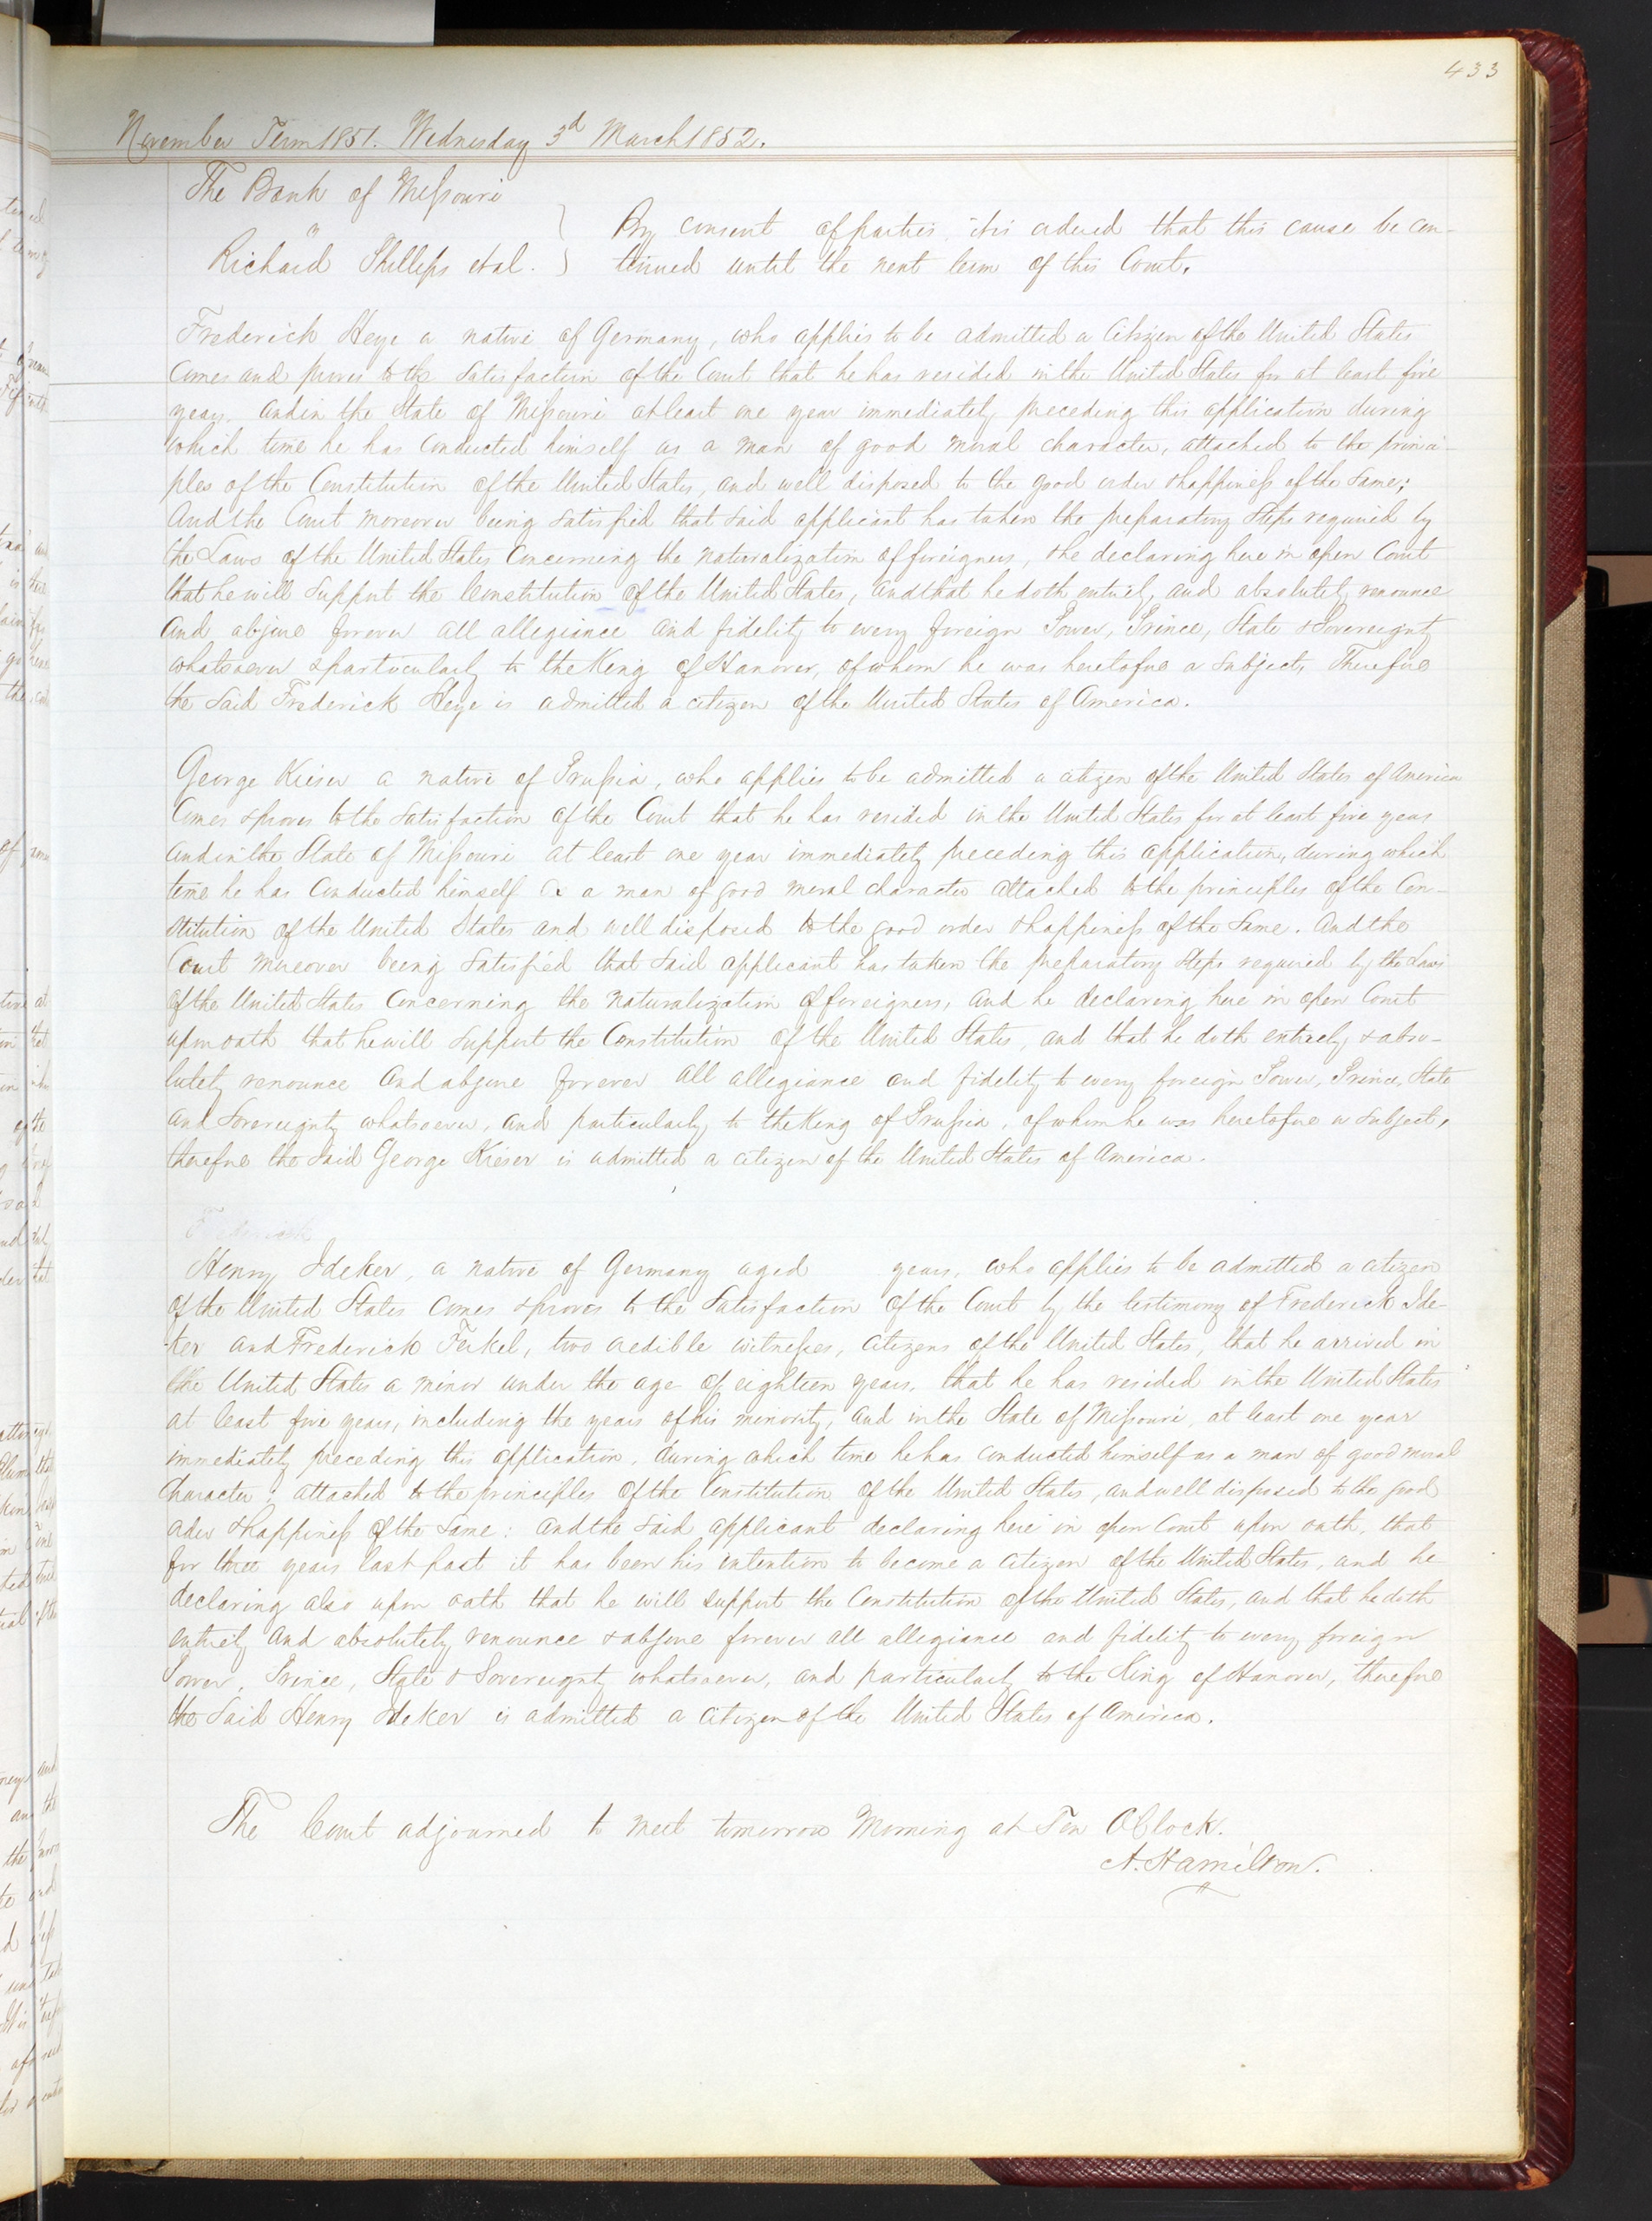 433
November Term 1851. Wednesday 3d March 1852.
The Bank of Missouri
"
Richard Phillips et al.
By consent of parties it is ordered that this cause be con-
tinued until the next term of this Court.
Frederick Heye a native of Germany, who applies to be admitted a Citizen of the United States
Comes and proves to the Satisfaction of the Court that he has resided in the United States for at least five
years. and in the State of Missouri at least one year immediately preceding this application during
which time he has Conducted himself as a man of good moral character, attached to the princi-
ples of the Constitution of the United States, and well disposed to the good order & happiness of the Same;
And the Court moreover being Satisfied that Said applicant has taken the preparatory Steps required by
the Laws of the United States Concerning the naturalization of foreigners, & he declaring here in open Court
that he will Support the Constitution of the United States, and that he doth entirely and absolutely renounce
And abjure forever all allegiance and fidelity to every foreign Power, Prince, State & Sovereignty
whatsoever & particularly to the King of Hanover, of whom he was heretofore a Subject, Therefore
the Said Frederick Heye is admitted a citizen of the United States of America.
George Kieser a native of Prussia, who applies to be admitted a citizen of the United States of America
Comes & proves to the Satisfaction of the Court that he has resided in the United States for at least five years
and in the State of Missouri at least one year immediately preceding this application, during which
time he has Conducted himself as a man of good moral character attached to the principles of the Con-
stitution of the United States and well disposed to the good order & happiness of the Same. And the
Court moreover being Satisfied that Said applicant has taken the preparatory Steps required by the Laws
of the United States Concerning the naturalization of foreigners, and he declaring here in open Court
upon oath that he will Support the Constitution of the United States, and that he doth entirely & abso-
lutely renounce and abjure forever all allegiance and fidelity to every foreign Power, Prince, State
and Sovereignty whatsoever, and particularly to the King of Prussia, of whom he was heretofore a Subject,
therefore the Said George Kieser is admitted a citizen of the United States of America.
Frederick
Henry Ideker, a native of Germany aged years, who applies to be admitted a citizen
of the United States Comes & proves to the Satisfaction of the Court by the testimony of Frederick Ide-
ker and Frederick Feikel, two credible witnesses, Citizens of the United States, that he arrived in
the United States a minor under the age of eighteen years, that he has resided in the United States
at least five years, including the years of his minority, and in the State of Missouri, at least one year
immediately preceding this application, during which time he has conducted himself as a man of good moral
Character; attached to the principles of the Constitution of the United States, and well disposed to the good
order & happiness of the Same; and the Said applicant declaring here in open Court upon oath, that
for three years last past it has been his intention to become a citizen of the United States, and he
declaring also upon oath that he will support the Constitution of the United States, and that he doth
entirely and absolutely renounce & abjure forever all allegiance and fidelity to every foreign
Power, Prince, State & Sovereignty whatsoever, and particularly to the King of Hanover, therefore
the Said Henry Ideker is admitted a Citizen of the United States of America.
The Court adjourned to meet tomorrow Morning at Ten OClock.
A. Hamilton.